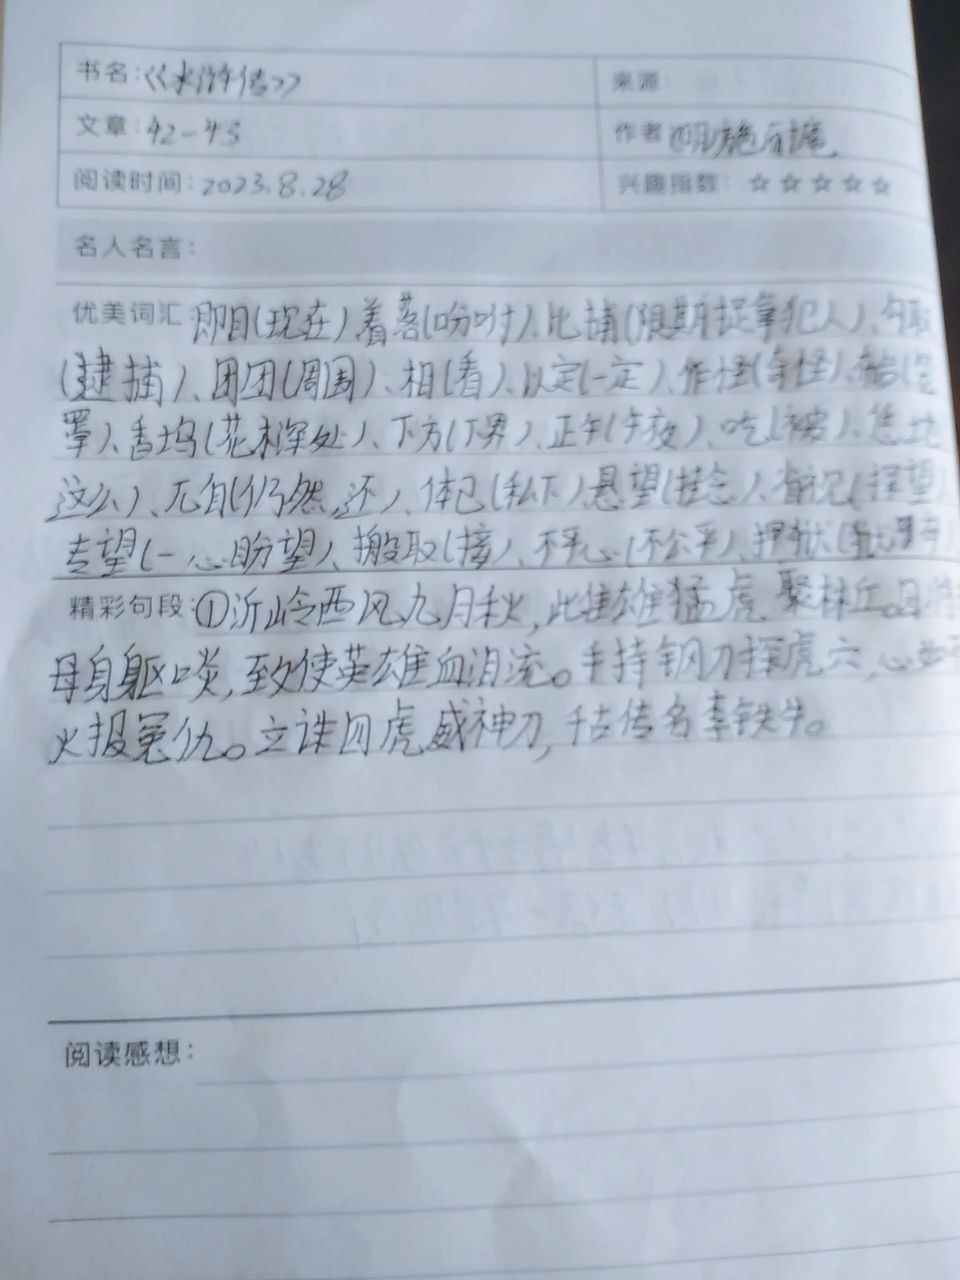 书名:《水浒传》 来源:
文章:42-43 作者 (明)施耐庵
阅读时间:2023.8.28 兴趣指数: ☆☆☆☆☆
名人名言:
优美词汇:即目(现在)、着落(吩咐)、比捕(限期捉拿犯人)、勾取
(逮捕)、团团(周围)、相(看)、以定(一定)、作怪(奇怪)、
罩)、香坞(花木深处)、下方(下界)、正午(午夜)、吃(被)、恁地
这么)、兀自(仍然,还)、体己(私下)、悬望(挂念)、省视(探望)
专望(一心盼望)、搬取(接)、不平心(不公平)、押狱(狱
精彩句段:①沂岭西风九月秋,此雄雄猛虎聚林丘。
母身躯啖,致使英雄血泪流。手持钢刀探虎穴,心
火报冤仇。立诛四虎威神刀,千古传名李铁牛。
阅读感想: